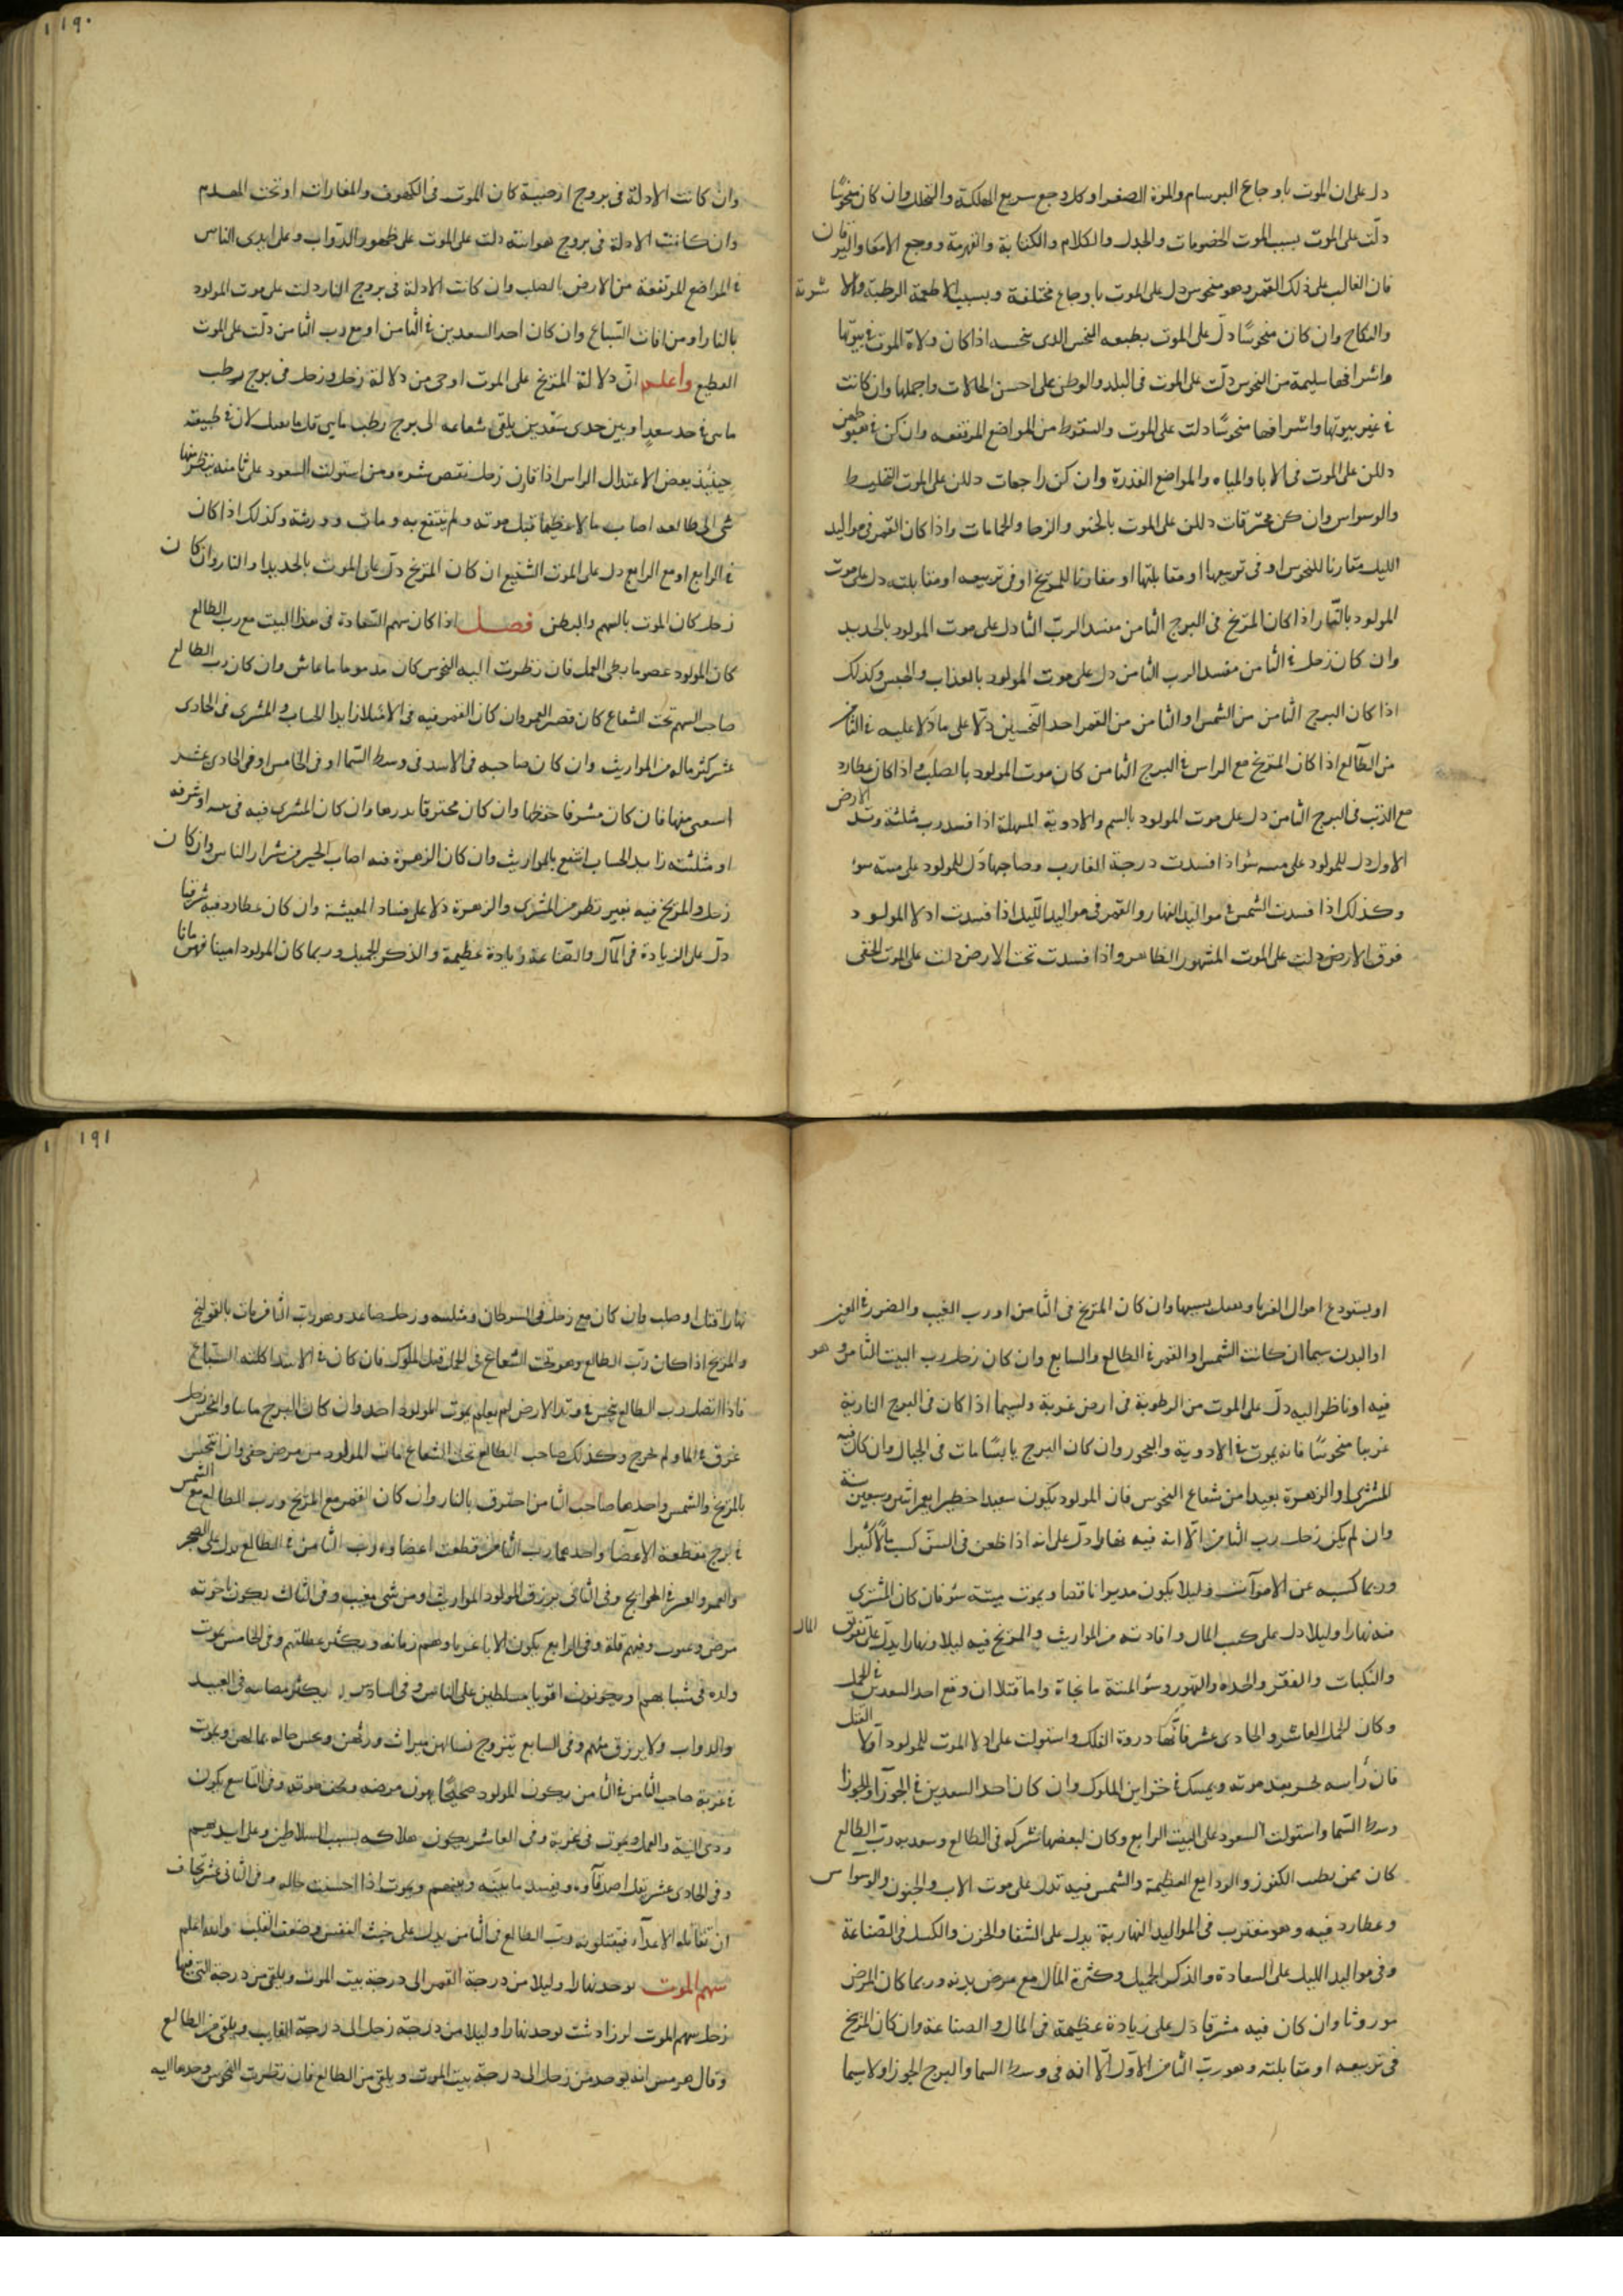 دل على ان الموت باوجاع البرسام والمرة الصفرا وكل وجع سريع المهلكة والتهلك وان كان منحوسًا
دلّت على الموت بسبب الموت الخصومات والجدل والكلام والكتابة والقهرمة ووجع الامعا واليرقان
فان الغالب على ذلك القمر وهو منحوس دل على الموت باوجاع مختلفة وبسبب الاطعمة الرطبة والاشربة
والنكاح وان كان منحوسًا دلّ على الموت بطبيعه النحس الذى ينحسه اذا كان ولاة الموت فى بيوتها
واشرافها سليمة من النحوس دلّت على الموت فى البلد والوطن على احسن الحالات واجملها وان كانت
فى غير بيوتها واشرافها منحوسًا دلت على الموت والسقوط من المواضع المرتفعه وان كن فى هبوطهن
دللن على الموت فى الابا والمياه والمواضع القذرة وان كن راجعات دللن على الموت التخليط
والوسواس وان كن محترقات دللن على الموت بالخنو والزحا والحمامات واذا كان القمر فى مواليد
الليل مقارنا للنحوس او فى تربيعها او مقابلتها او مقارنا للمريخ او فى تربيعه او مقابلته دل على موت
المولود بالنار اذا كان المريخ فى البرج الثامن مفسد الرب الثا دل على موت المولود بالحديد
وان كان زحل فى الثامن مفسد الرب الثامن دل على موت المولود بالعذاب والحبس وكذلك
اذا كان البرج الثامن من الشمس او الثامن من القمر احد النحسين دلّا على ما دلا عليه فى الثامن
من الطالع اذا كان المريخ مع الراس فى البرج الثامن كان موت المولود بالصلب واذا كان عطارد
مع الذنب فى البرج الثامن دل على موت المولود بالسم والادوية المسهلة اذا فسد رب مثلثة وتد الارض
الاول دل للمولود على ميتة سؤ اذا فسدت درجة الغارب وصاحبها دل للمولود على ميتة سؤ
وكذلك اذا فسدت الشمس فى مواليد النهار والقمر فى مواليد الليل اذا فسدت ادلا المولود
فوق الارض دلت على الموت المشهور الظاهر واذا فسدت تحت الارض دلت على الموت الخفى
١٩٠
وان كانت الادلة فى بروج ارضية كان الموت فى الكهوف والمغارات او تحت الهدم
وان كانت الادلة فى بروج هوائية دلت على الموت على ظهور الدّواب وعلى ايدى الناس
فى المواضع المرتفعة من الارض بالصلب وان كانت الادلة فى بروج النار دلت على موت المولود
بالنار او من افات السّباع وان كان احد السعدين فى الثامن او مع رب الثامن دلّت على الموت
الفظيع واعلم انّ دلالة المريخ على الموت اوحى من دلالة زحل وزحل فى برج رطب
ماىى فى حد سعدٍ او بين جدى سَعْدين يلقى شعاعه الى برج رطب ماىى قلّ ما يقتل لان فى طبيعته
حينئذ بعض الاعتدال الراس اذا قارن زحل نقص شره ومن استولت السعود على ثامنه ينظر منها
شى الى طالعه اصاب مالا عظيما قبل موته ولم ينتفع به ومات وورثه وكذلك اذا كان
فى الرابع او مع الرابع دل على الموت الشنيع ان كان المريخ دلّ على الموت بالحديد او النار وان كان
زحل كان الموت بالسهم والبطن فصل اذا كان سهم السّعادة فى هذا البيت مع رب الطالع
كان المولود عصوما بطى العمل فان نظرت اليه النحوس كان مذموما ما عاش وان كان رب الطالع
صاحب السهم تحت الشعاع كان قصير العمر وان كان القمر فيه فى الامتلا زايدا الحساب والمشترى فى الحادى
عشر كثر ماله من المواريث وان كان صاحبه فى الاسد فى وسط السّما او فى الخامس او فى الحادى عشر
استغنى منها فان كان مشرفا حفظها وان كان محترقا بدرها وان كان المشترى فيه فى بيته او شرفه
او مثلثته زايد الحساب انتفع بالمواريث وان كان الزهرة فيه اصاب الخير من شرار الناس وان كان
زحل والمريخ فيه بغير نظر من المشترى والزهرة دلا على فساد المعيشة وان كان عطارد فيه شرقيا
دلّ على الزيادة فى المال والصّناعة زيادة عظيمة والذكر الجميل وربما كان المولود امينا قهرمانا
او يستودع اموال الغربا وىعىك بسببها وان كان المريخ فى الثامن او رب الغيب والضرر فى العين
او البدن سيما ان كانت الشمس او القمر فى الطالع والسابع وان كان زحل رب البيت الثامن وهو
فيه او ناظر اليه دلّ على الموت من الرطوبة فى ارض غربة ولسيما اذا كان فى البرج النارية
غربيا منحوسًا فانه يموت فى الادوية والبحور وان كان البرج يابسًا مات فى الجبال وان كان فيه
المشترى او الزهرة بعيدا من شعاع النحوس فان المولود يكون سعيدا خطيرا يعمر اثنين وسبعين سنة
وان لم يكن زحل رب الثامن الّا انه فيه نهارا دلّ على انه اذا طعن فى السنّ كسب مالًا كثيرا
وربما كسبه عن الاموات وليلا يكون مدبرا ناقصا ويموت ميتة سؤ فان كان المشترى
فيه نهارا وليلا دل على كسب المال وافادته من المواريث والمريخ فيه ليلا ونهارا يدل على تفرق المال
والنكبات والفقر والحده والتهور وسؤ الميتة ما نجاة واما قتلا ان وقع احد السعدين فى الحمل
وكان الحمل العاشر والحادى عشر فانّها ذروة الفلك واستولت على ادلا الموت للمولود اولا القتل
فان رأسه يحز بعد موته ويمسك فى خزاين الملوك وان كان احد السعدين فى الجوزآ والجوزا
وسط السّما واستولت السعود على البيت الرابع وكان لبعضها شركه فى الطالع وسعد به ربّ الطالع
كان ممن يطلب الكنوز والودايع العظيمة والشمس فيه تدل على موت الاب والجنون والوسواس
وعطارد فيه وهو مغترب فى المواليد النهارية يدل على الشقا والحزن والكسل فى الصّناعة
وفى مواليد الليل على السعادة والذكر الجميل وكثرة المال مع مرض بدنه وربما كان المرض
موروثا وان كان فيه مشرقا دل على زيادة عظيمة فى المال والصناعة وان كان المريخ
فى تربيعه او مقابلته وهو ربّ الثامن الاول الّا انه فى وسط السما والبرج الجوزا ولا سيما
١٩١
نهارا قتل او صلب وان كان مع زحل فى السرطان ومثلثه وزحل صاعد وهو رب الثامن مات بالقولنج
والمريخ اذا كان ربّ الطالع وهو تحت الشعاع فى الحمل قتل الملوك فان كان فى الاسد اكلته السّباع
فاذا اتصل رب الطالع بنحس فى وتد الارض لم يعلم بموت المولود احد وان كان البرج مائيا والنحس زحل
غرق فى الما ولم يخرج وكذلك صاحب الطالع تحت الشعاع مات المولود من مرض خفى وان نحس
بالمريخ والشمس واحدها صاحب الثامن احترق بالنار وان كان القمر مع المريخ ورب الطالع مع الشمس
فى برج مقطعة الاعضا واحدهما رب الثامن قطعت اعضاوه ورب الثامن فى الطالع يدل على الضجر
والعمر والعسر فى الحوايج وفى الثانى يرزق المولود المواريث او من شى مغيب وفى الثالث يكون اخوته
مرضى وعيوب وفيهم قلة وفى الرابع يكون الابا غربا وهم زمانه ويكثر عطلتهم وفى الخامس يموت
ولده فى شبابهم او يكونون اقويا مسلطين على الناس وفى السادس يكثر مصائبه فى العبيد
والدواب ولا يرزق منهم وفى السابع يتزوج نسا لهن ميراث ورثهن وىحسن حاله بمالهن ويموت
فى غربة صاحب الثامن فى الثامن يكون المولود صحيحًا يهون مرضه ويخف موته وفى التاسع يكون
ردى النية والعمل ويموت فى غربة وفى العاشر يكون هلاكه بسبب السلاطين وعلى ايديهم
وفى الحادى عشر يقل اصدقآوه ويفسد ما بينه وبينهم ويموت اذا احسنت حاله وفى الثانى عشر يخاف
ان تقاتله الاعدآء فيقتلونه وربّ الطالع فى الثامن يدل على خبث النفس وضعف القلب والله اعلم
سهم الموت يوخذ نهارا وليلا من درجة القمر الى درجة بيت الموت ويلقى من درجة التى فيها
زحل سهم الموت لزرادشت يوخذ نهارا وليلا من درجة زحل الى درجة الغارب ويلقى من الطالع
وقال هرمس انه يوخذ من زحل الى درجة بيت الموت ويلقى من الطالع فان نظرت النحوس وحدها اليه